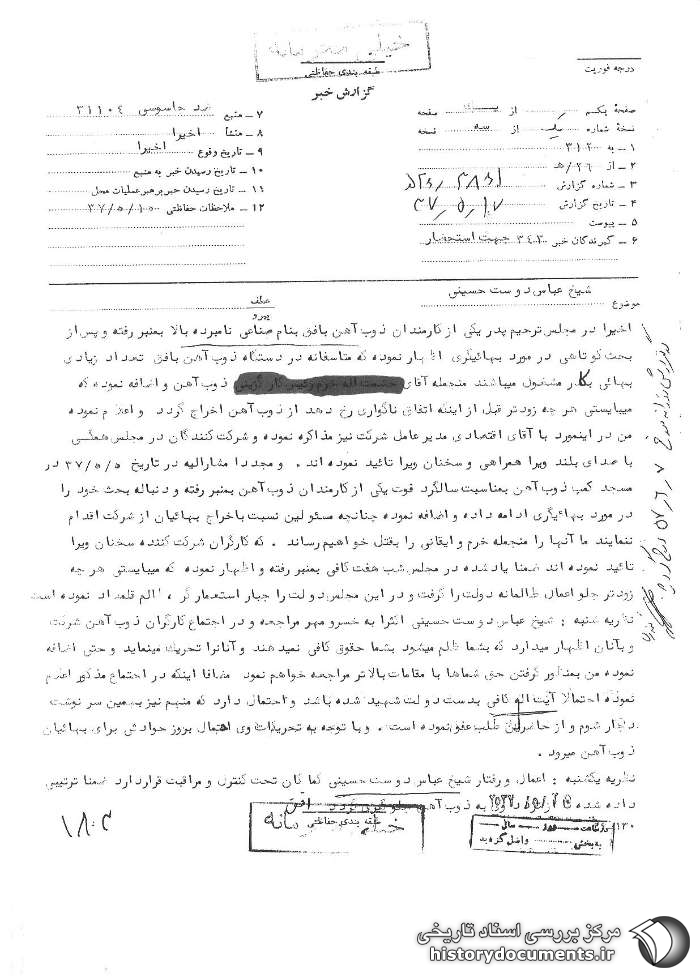 خیلی محرمانه
طبقه بندی حفاظتی
گزارش خبر
درجه فوریت
صفحهٔ یکم از یک صفحه
نسخهٔ شماره یک از سه نسخه
۱ ـ به ۳۱۲
۲ ـ از ۲۶/هـ
۳ ـ شماره گزارش
۴ ـ تاریخ گزارش
۵ ـ پیوست
۶ ـ گیرندگان خبر ۳۴۳ جهت استحضار
۷ ـ منبع ضد جاسوسی ۳۱۱۰۴
۸ ـ منشأ اخیرا
۹ ـ تاریخ وقوع اخیرا
۱۰ ـ تاریخ رسیدن خبر به منبع
۱۱ ـ تاریخ رسیدن خبر برهبر عملیات محل
۱۲ ـ ملاحظات حفاظتی
شیخ عباس دوست حسینی
موضوع
عطف
پیرو
اخیرا در مجلس ترحیم پدر یکی از کارمندان ذوب آهن بافق بنام صناعی نامبرده بالا بمنبر رفته و پس از
بحث کوتاهی در مورد بهائیگری اظهار نموده که متاسفانه در دستگاه ذوب آهن بافق تعداد زیادی
بهائی بکار مشغول میباشند منجمله آقای حشمت اله خرم رئیس کارگزینی ذوب آهن و اضافه نموده که
میبایستی هر چه زودتر قبل از اینکه اتفاق ناگواری رخ دهد از ذوب آهن اخراج گردد و اعلام نموده
من در اینمورد با آقای اقتصادی مدیر عامل شرکت نیز مذاکره نموده و شرکت کنندگان در مجلس همگی
با صدای بلند ویرا همراهی و سخنان ویرا تائید نموده اند . و مجددا مشارالیه در تاریخ ۳۷/۵/۵ در
مسجد کمپ ذوب آهن بمناسبت سالگرد فوت یکی از کارمندان ذوب آهن بمنبر رفته و دنباله بحث خود را
در مورد بهائیگری ادامه داده و اضافه نموده چنانچه مسئولین نسبت باخراج بهائیان از شرکت اقدام
ننمایند ما آنها را منجمله خرم و ایقانی را بقتل خواهیم رساند . که کارگران شرکت کننده سخنان ویرا
تائید نموده اند ضمنا یاد شده در مجلس شب هفت کافی بمنبر رفته و اظهار نموده که میبایستی هر چه
زودتر جلو اعمال ظالمانه دولت را گرفت و در این مجلس دولت را جبار استعمارگر ، ظالم قلمداد نموده است
نظریه شنبه : شیخ عباس دوست حسینی اکثرا به خسرو مهر مراجعه و در اجتماع کارگران ذوب آهن شرکت
و بآنان اظهار میدارد که بشما ظلم میشود بشما حقوق کافی نمیدهند و آنانرا تحریک مینماید و حتی اضافه
نموده من بمنظور گرفتن حق شماها با مقامات بالاتر مراجعه خواهم نمود مضافا اینکه در اجتماع مذکور اعلام
نموده احتمالا آیت اله کافی بدست دولت شهید شده باشد و احتمال دارد که منهم نیز بهمین سرنوشت
دچار شوم و از حاضرین طلب عفو نموده است . و با توجه به تحریکات وی احتمال بروز حوادثی برای بهائیان
ذوب آهن میرود .
نظریه یکشنبه : اعمال و رفتار شیخ عباس دوست حسینی کماکان تحت کنترل و مراقبت قرار دارد ضمنا ترتیبی
داده شده به ذوب آهن بافق جلوگیری گردد
۱۳۰
طبقه بندی حفاظتی
خیلی محرمانه
در ساعت روز سال
به بخش واصل گردید
مرکز بررسی اسناد تاریخی
historydocuments.ir